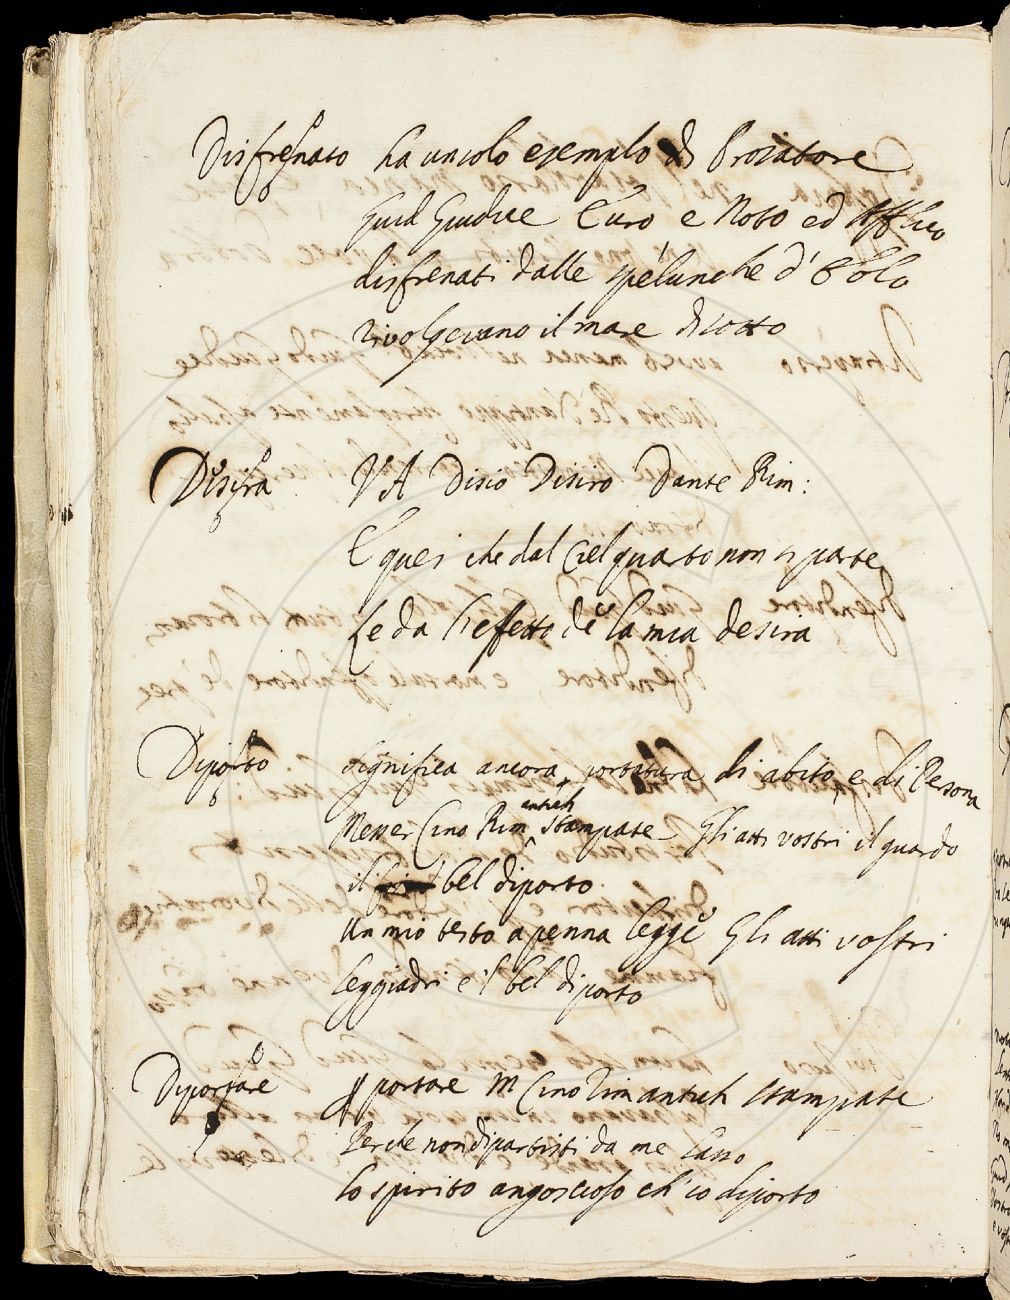 Disfrenato ha un solo esempio di Prosatore
Guid Giudice Euro e Noto ed Affrico
disfrenati dalle spelunche d'Eolo
rivolgevano il mare di sotto
Disira VA Disio Disiro Dante Rim:
E quei che dal ciel quarto non si parte
Le da l'effetto de la mia desira
Diporto Significa ancora portatura di abito, e di Persona
Messer Cino Rim antich stampate Gli atti vostri il guardo
il bel diporto
Un mio testo a penna legge Gli atti vostri
leggiadri e 'l bel diporto
Diportare p portare M Cino Rim antich stampate
Perche non dipartisti da me lasso
Lo spirito angoscioso ch'io diporto